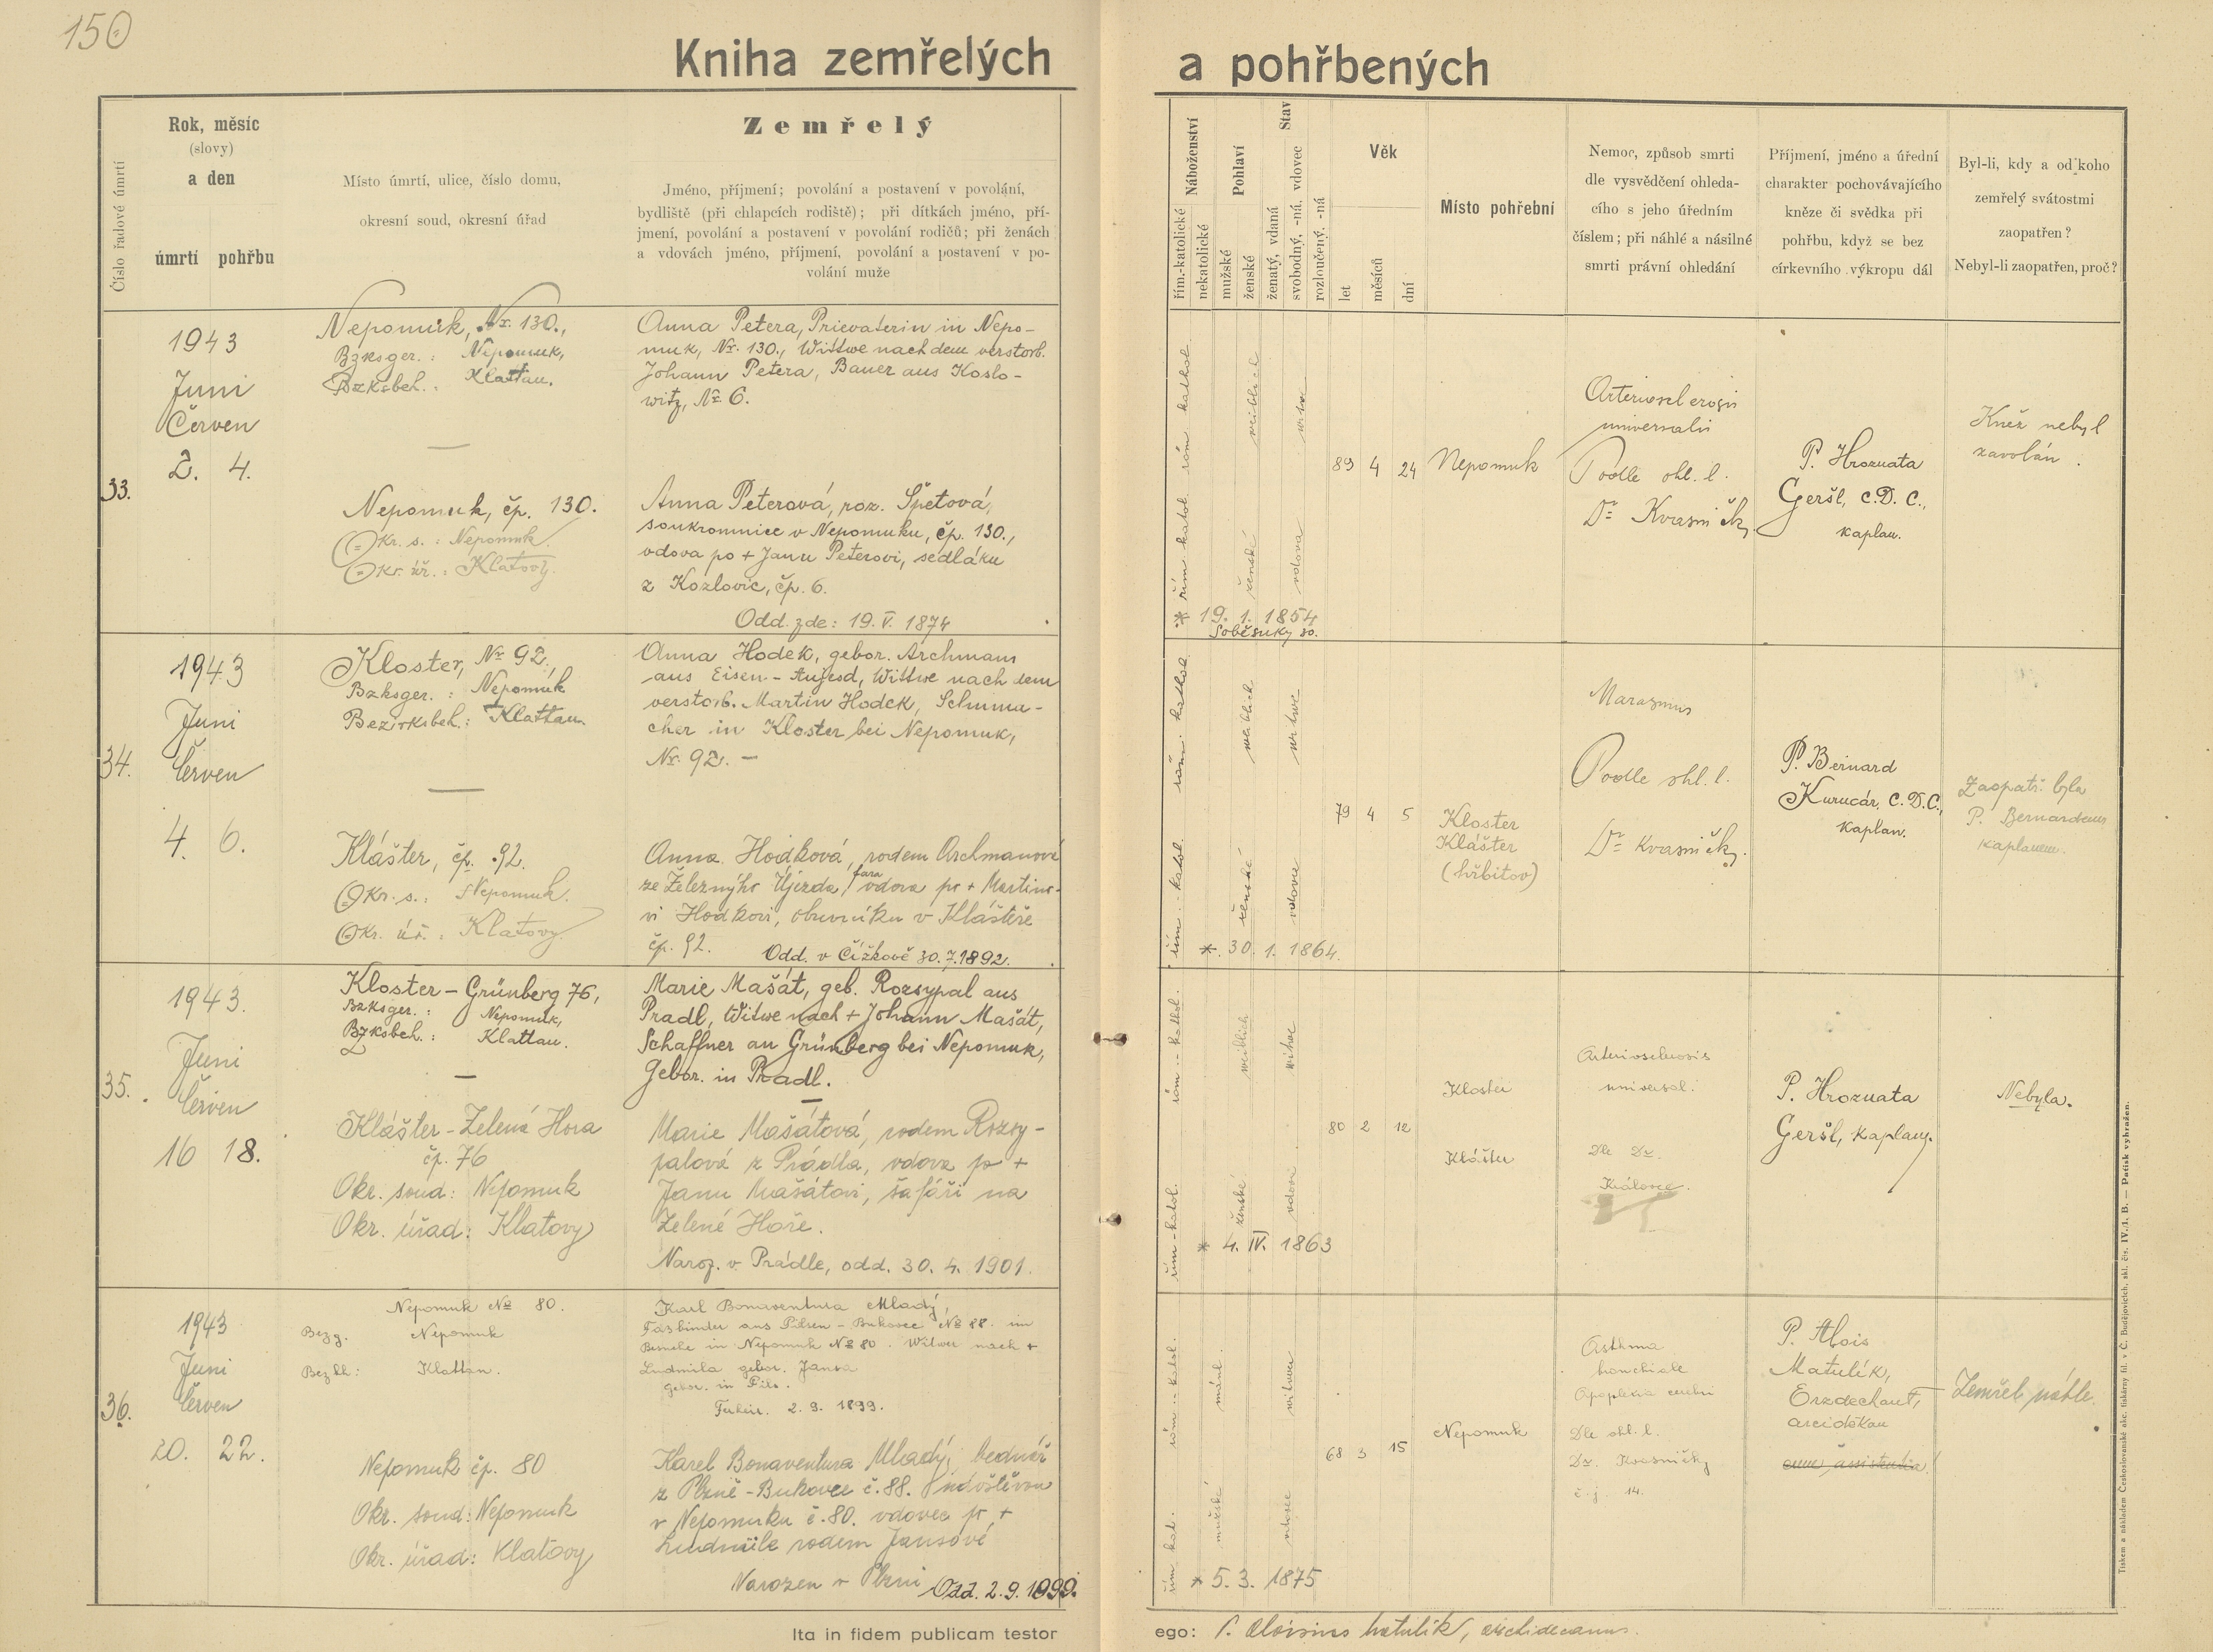 150
Kniha zemřelých a pohřbených
Číslo řadové úmrtí
Rok, měsíc
(slovy)
a den
úmrtí pohřbu
Místo úmrtí, ulice, číslo domu,
okresní soud, okresní úřad
Zemřelý
Jméno, příjmení; povolání a postavení v povolání,
bydliště (při chlapcích rodiště); při dítkách jméno, pří-
jmení, povolání a postavení v povolání rodičů; při ženách
a vdovách jméno, příjmení, povolání a postavení v po-
volání muže
Náboženství
řím.-katolické
nekatolické
Pohlaví
mužské
ženské
Stav
ženatý, vdaná
svobodný, -ná, vdovec
rozloučený, -ná
Věk
let
měsíců
dní
Místo pohřební
Nemoc, způsob smrti
dle vysvědčení ohleda-
cího s jeho úředním
číslem; při náhlé a násilné
smrti právní ohledání
Příjmení, jméno a úřední
charakter pochovávajícího
kněze či svědka při
pohřbu, když se bez
církevního výkropu dál
Byl-li, kdy a od koho
zemřelý svátostmi
zaopatřen?
Nebyl-li zaopatřen, proč?
33.
1943
Juni
Červen
2. 4.
Nepomuk, Nr. 130.,
Bzksger.: Nepomuk,
Bzksbeh.: Klattau.
—
Nepomuk, čp. 130.
Okr. s.: Nepomuk.
Okr. úř.: Klatovy.
Anna Petera, Prievaterin in Nepo-
muk, Nr. 130., Wittwe nach dem verstorb.
Johann Petera, Bauer aus Koslo-
witz, Nr. 6.
Anna Peterová, roz. Špetová,
soukromnice v Nepomuku, čp. 130.,
vdova po + Janu Peterovi, sedláku
z Kozlovic, čp. 6.
Odd. zde: 19. V. 1874
řím. katol. röm. kathol.
ženské weiblich
vdova witwe
* 19. 1. 1854
Soběsuky 30.
89 4 24
Nepomuk
Arteriosclerosis
universalis
Podle ohl. l.
Dr. Kvasničky
P. Hroznata
Geršl, C.D.C.,
kaplan.
Kněz nebyl
zavolán.
34.
1943
Juni
Červen
4. 6.
Kloster, Nr 92.,
Bzksger.: Nepomuk
Bezirksbeh.: Klattau.
—
Klášter, čp. 92.
Okr. s.: Nepomuk.
Okr. úř.: Klatovy.
Anna Hodek, gebor. Archmann
aus Eisen-Aujesd, Wittwe nach dem
verstorb. Martin Hodek, Schuma-
cher in Kloster bei Nepomuk,
Nr. 92. —
Anna Hodková, rodem Archmanová
ze Železnýho Újezda, fara vdova po + Martino-
vi Hodkovi, obuvníku v Klášteře
čp. 92. Odd. v Čížkově 30.7.1892.
řím. katol. röm. kathol.
ženské weiblich
vdova witwe
*. 30. 1. 1864.
79 4 5
Kloster
Klášter
(hřbitov)
Marasmus
Podle ohl. l.
Dr. Kvasničky.
P. Bernard
Kurucár, C.D.C.,
kaplan.
Zaopatř. byla
P. Bernardem
kaplanem.
35.
1943.
Juni
Červen
16 18.
Kloster-Grünberg 76,
Bzksger.: Nepomuk,
Bzksbeh.: Klattau.
—
Klášter-Zelená Hora
čp. 76
Okr. soud: Nepomuk
Okr. úřad: Klatovy
Marie Mašát, geb. Rozsypal aus
Pradl, Witwe nach + Johann Mašát,
Schaffner an Grünberg bei Nepomuk,
Gebor. in Pradl.
—
Marie Mašátová, rodem Rozsy-
palová z Prádla, vdova po +
Janu Mašátovi, šafáři na
Zelené Hoře.
Naroz. v Prádle, odd. 30. 4. 1901.
řím.-katol. röm.-kathol.
ženské weiblich
vdova witwe
* 4. IV. 1863
80 2 12
Kloster
Klášter
Arteriosclerosis
universal.
Dle Dr.
P. Hroznata
Geršl, kaplan.
Nebyla.
36.
1943
Juni
Červen
20. 22.
Nepomuk No 80.
Bezg. Nepomuk
Bez bh: Klattau.
Nepomuk čp. 80
Okr. soud: Nepomuk
Okr. úřad: Klatovy
Karl Bonaventura Mladý,
Fassbinder aus Pilsen-Bukovec No 88. im
Besuche in Nepomuk No 80. Witwer nach +
Ludmila gebor. Jansa
gebor. in Pils.
2. 9. 1899.
Karel Bonaventura Mladý, bednář
z Plzně-Bukovce č. 88. návštěvou
v Nepomuku č. 80. vdovec po +
Ludmile rodem Jansové
Narozen v Plzni Odd. 2.9.1899.
řím kat. röm.-kathol.
mužské männl.
vdovec witwer
* 5. 3. 1875
68 3 15
Nepomuk
Asthma
bronchiale
Apoplexia cerebri
Dle ohl. l.
Dr. Kvasničky
č.j. 14.
P. Alois
Matulík,
Erzdechant,
arciděkan
cum assistentia!
Zemřel náhle.
Ita in fidem publicam testor ego: P. Aloisius Matulík, archidecanus.
Tiskem a nákladem Českoslovanské akc. tiskárny fil. v Č. Budějovicích, skl. čís. IV./1. B. — Patisk vyhražen.